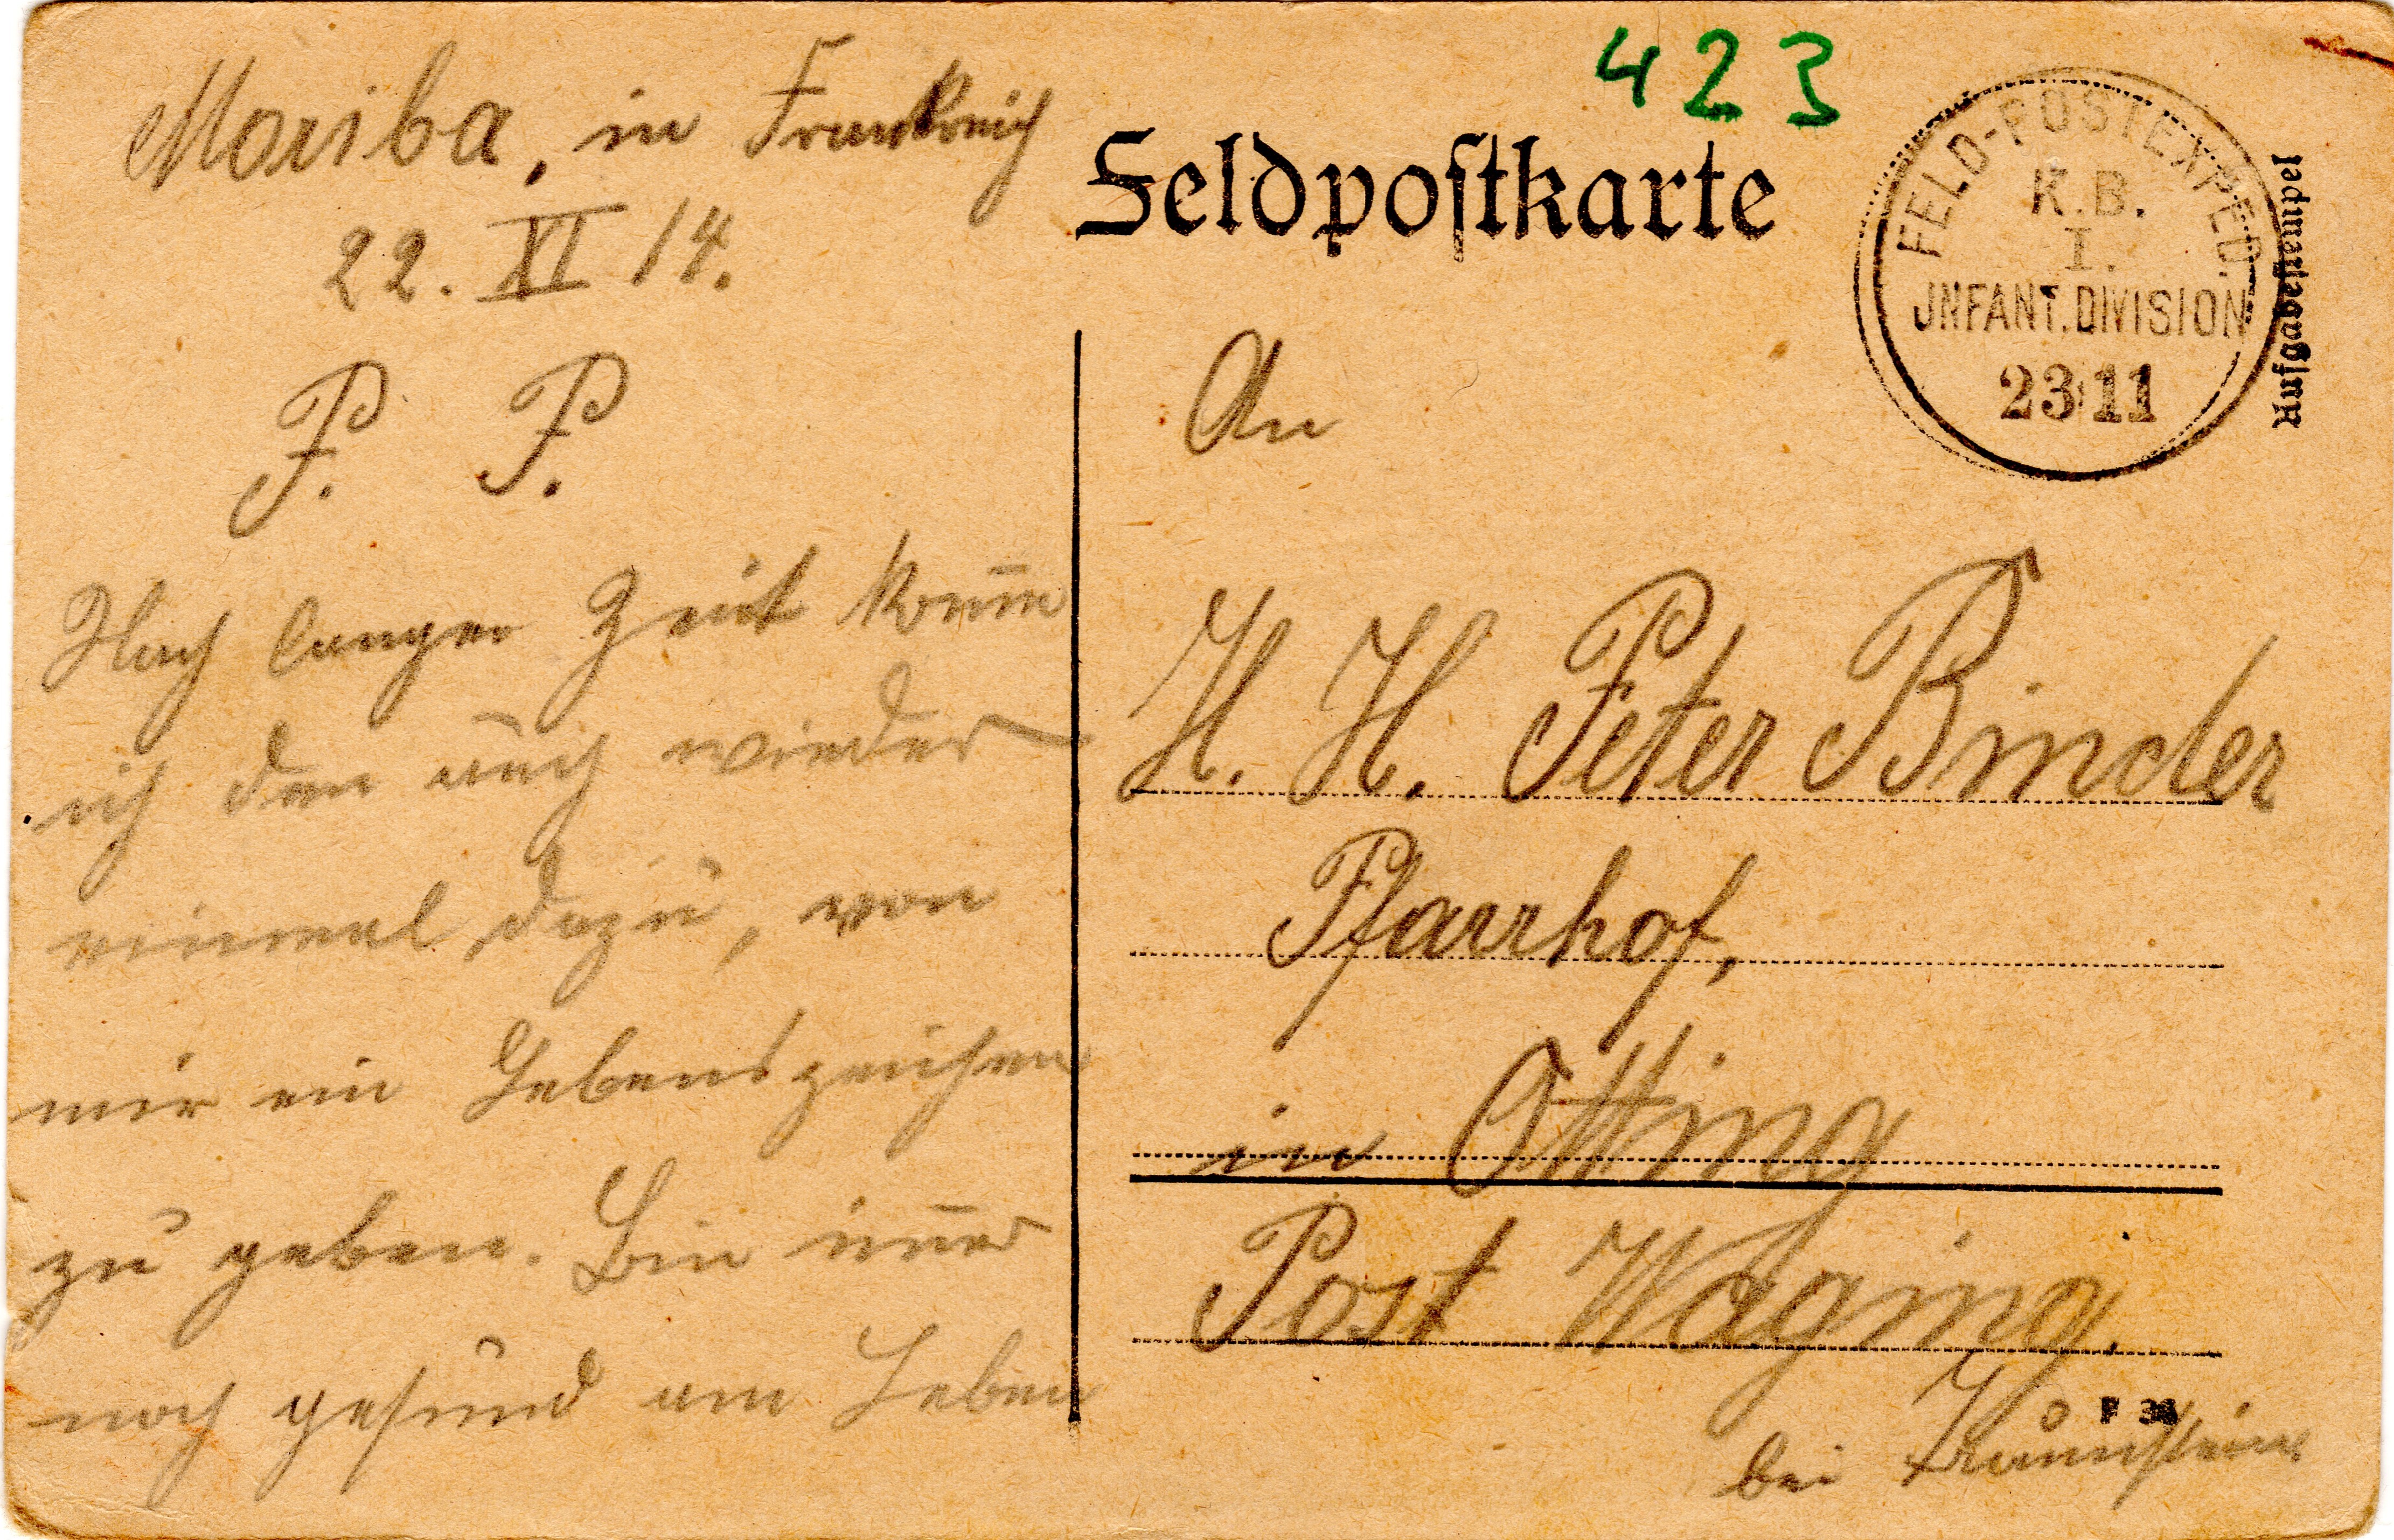 423
Feldpostkarte
FELD-POSTEXPED.
K.B.
I.
JNFANT.DIVISION
23 11
Aufgabestempel
Moriba, in Frankreich
22. XI 14.
P. P.
Nach langer Zeit kom̅e
ich den auch wieder
einmal dazu, von
mir ein Lebenszeichen
zu geben. Bin im̅er
noch gesund am Leben
An
H. H. Peter Binder
Pfarrhof,
in Otting
Post Waging.
bei Traunstein